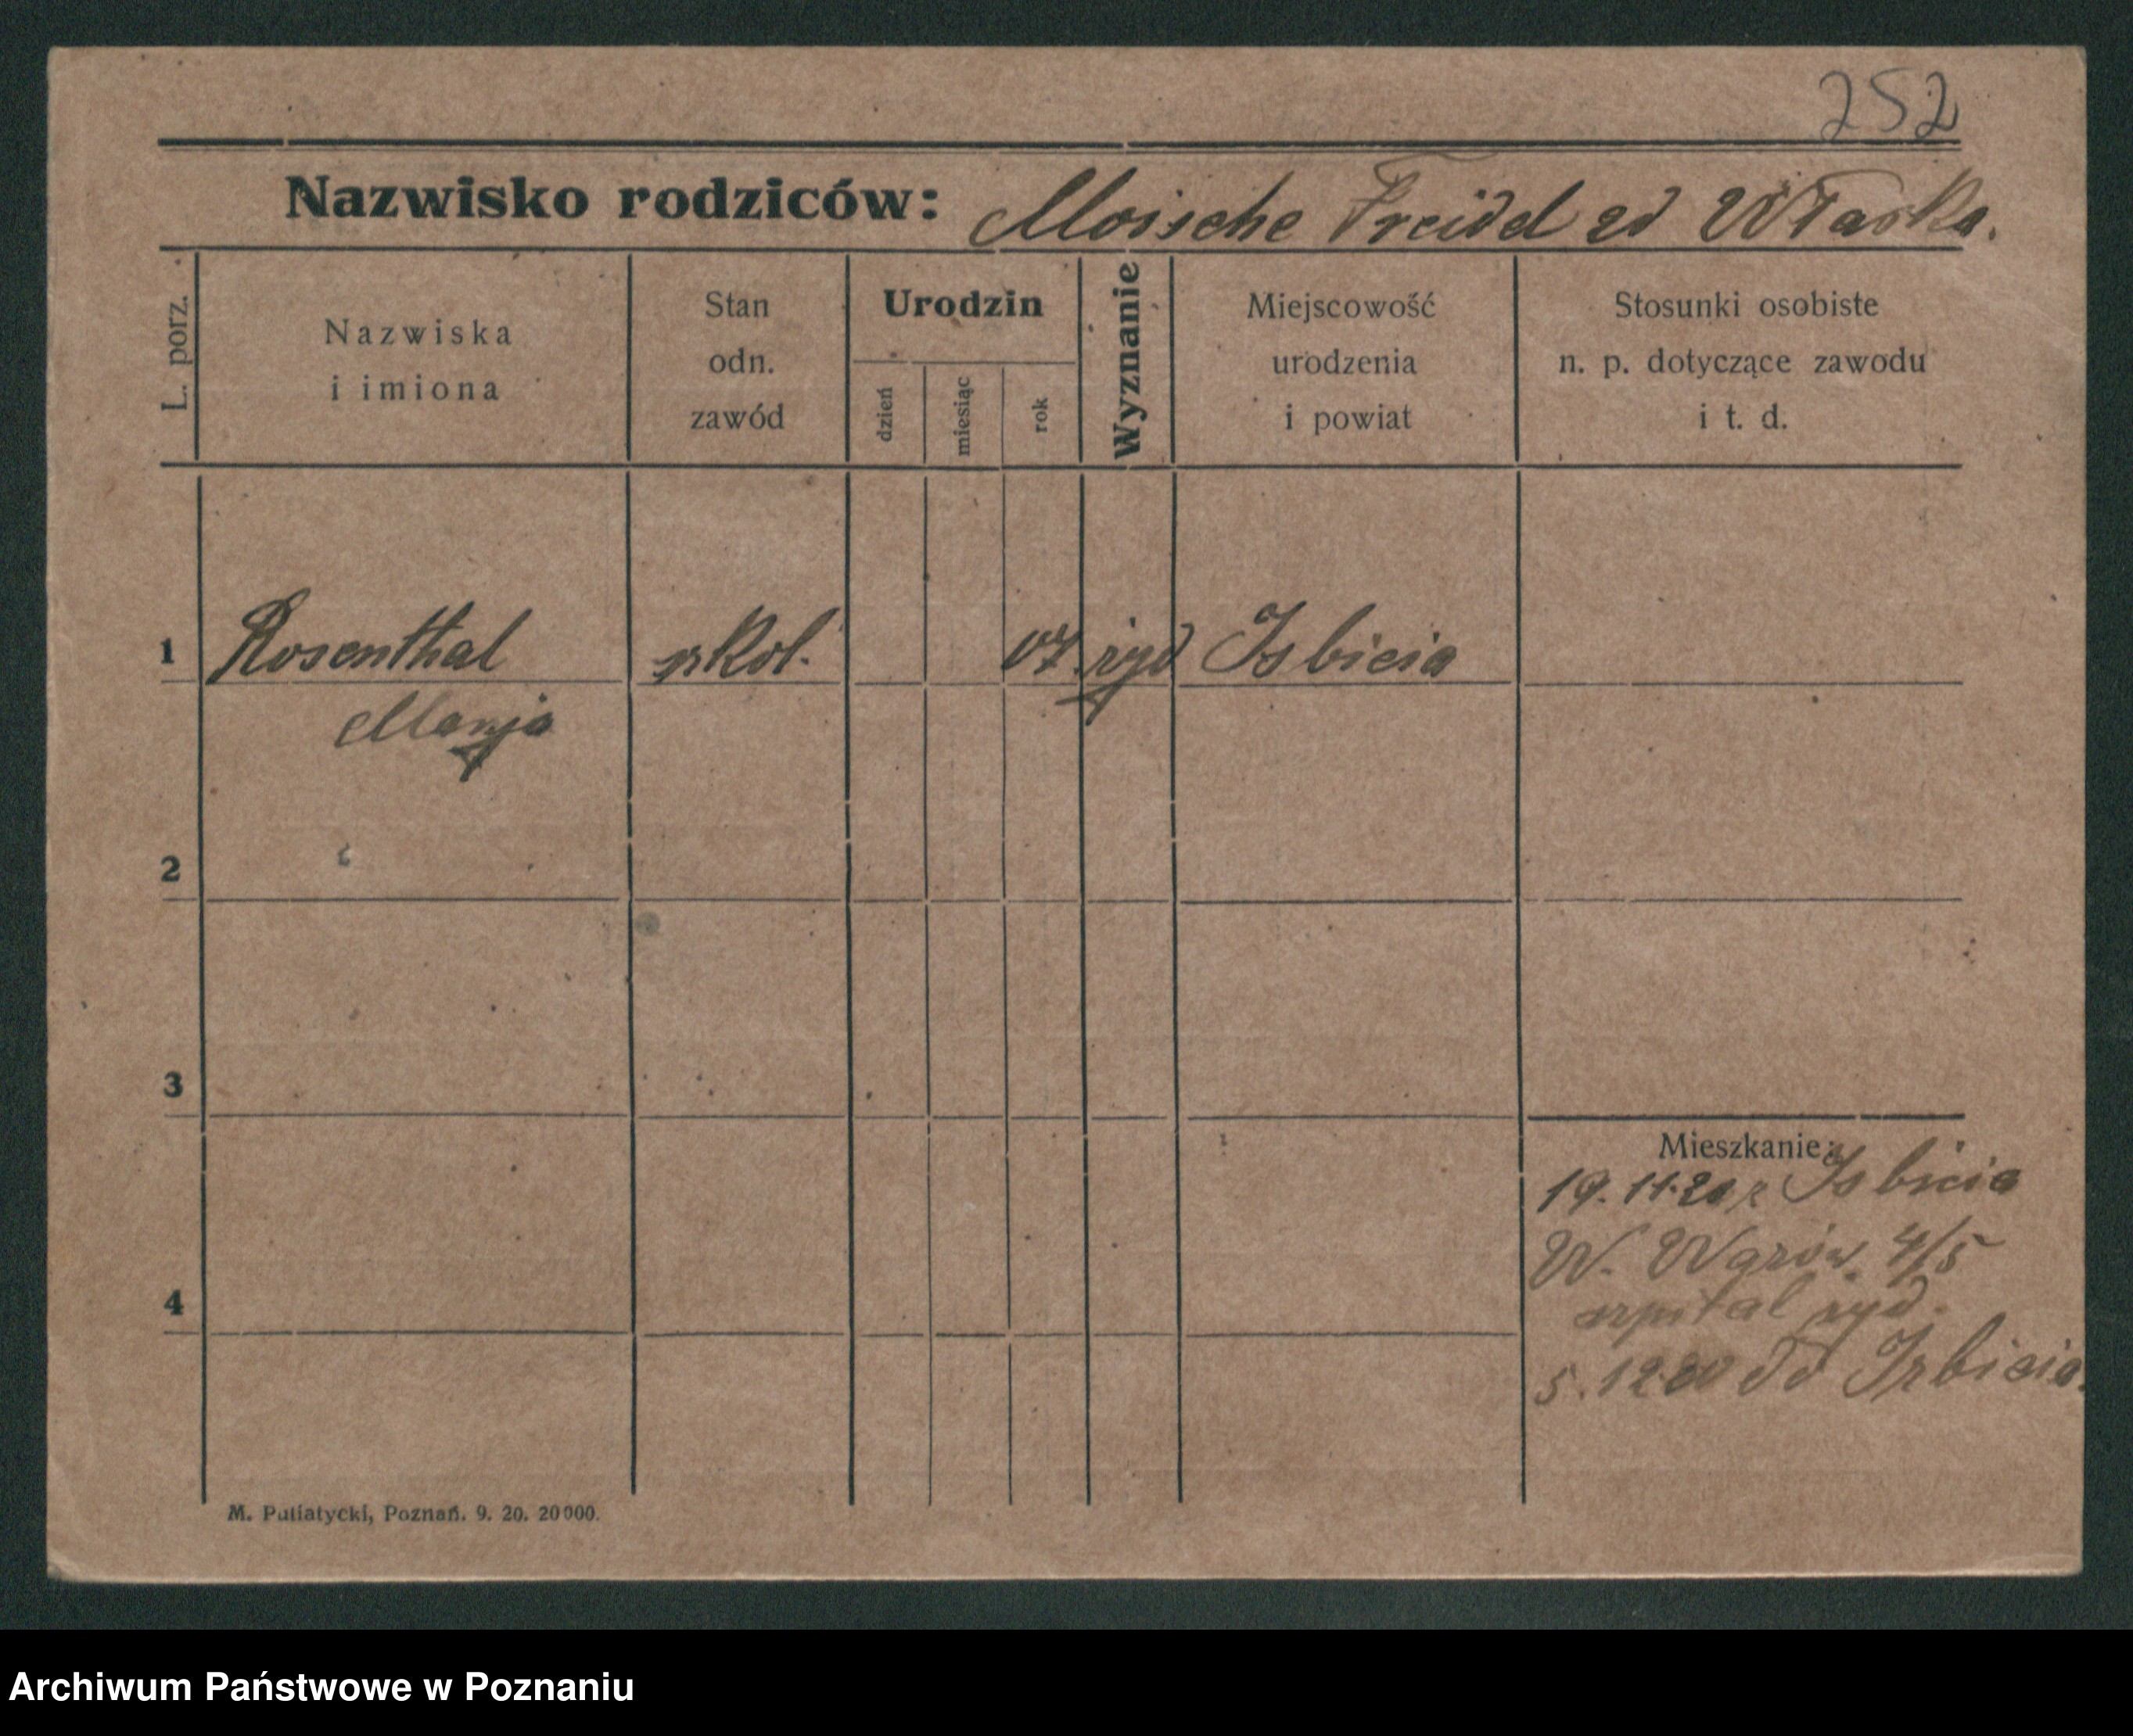 252
Nazwisko rodziców: Moische Freidel zd Wlaska.
L. porz.
Nazwiska
i imiona
Stan
odn.
zawód
Urodzin
dzień
miesiąc
rok
Wyznanie
Miejscowość
urodzenia
i powiat
Stosunki osobiste
n. p. dotyczące zawodu
i t. d.
1 Rosenthal szkol. 07. żyd Isbicia
Manja
2
3
Mieszkanie:
19.11.20 z Isbicia
W. Garów. 4/5
szpital żyd.
4
5.12.20 do Izbicia.
M. Putiatycki, Poznań. 9. 20. 20000.
Archiwum Państwowe w Poznaniu